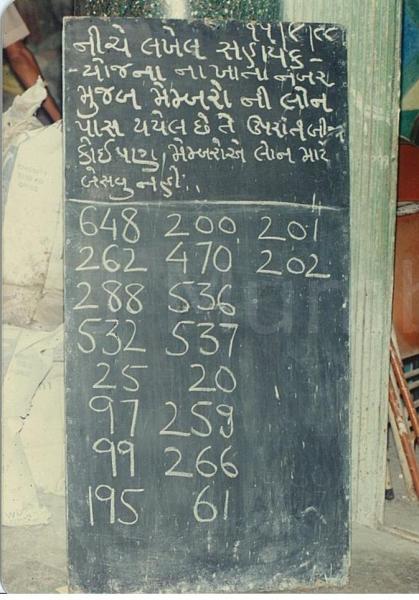 ૧૫|૯|૯૮
નીચે લખેલ સહાયક -
- યોજના ના ખાતા નંબર
મુજબ મેમ્બરો ની લોન
પાસ થયેલ છે તે ઉપરાંત બીજા
કોઈપણ મેમ્બરોએ લોન માટે
બેસવુ નહીં..
648 200 201
262 470 202
288 536
532 537
25 20
97 259
99 266
195 61